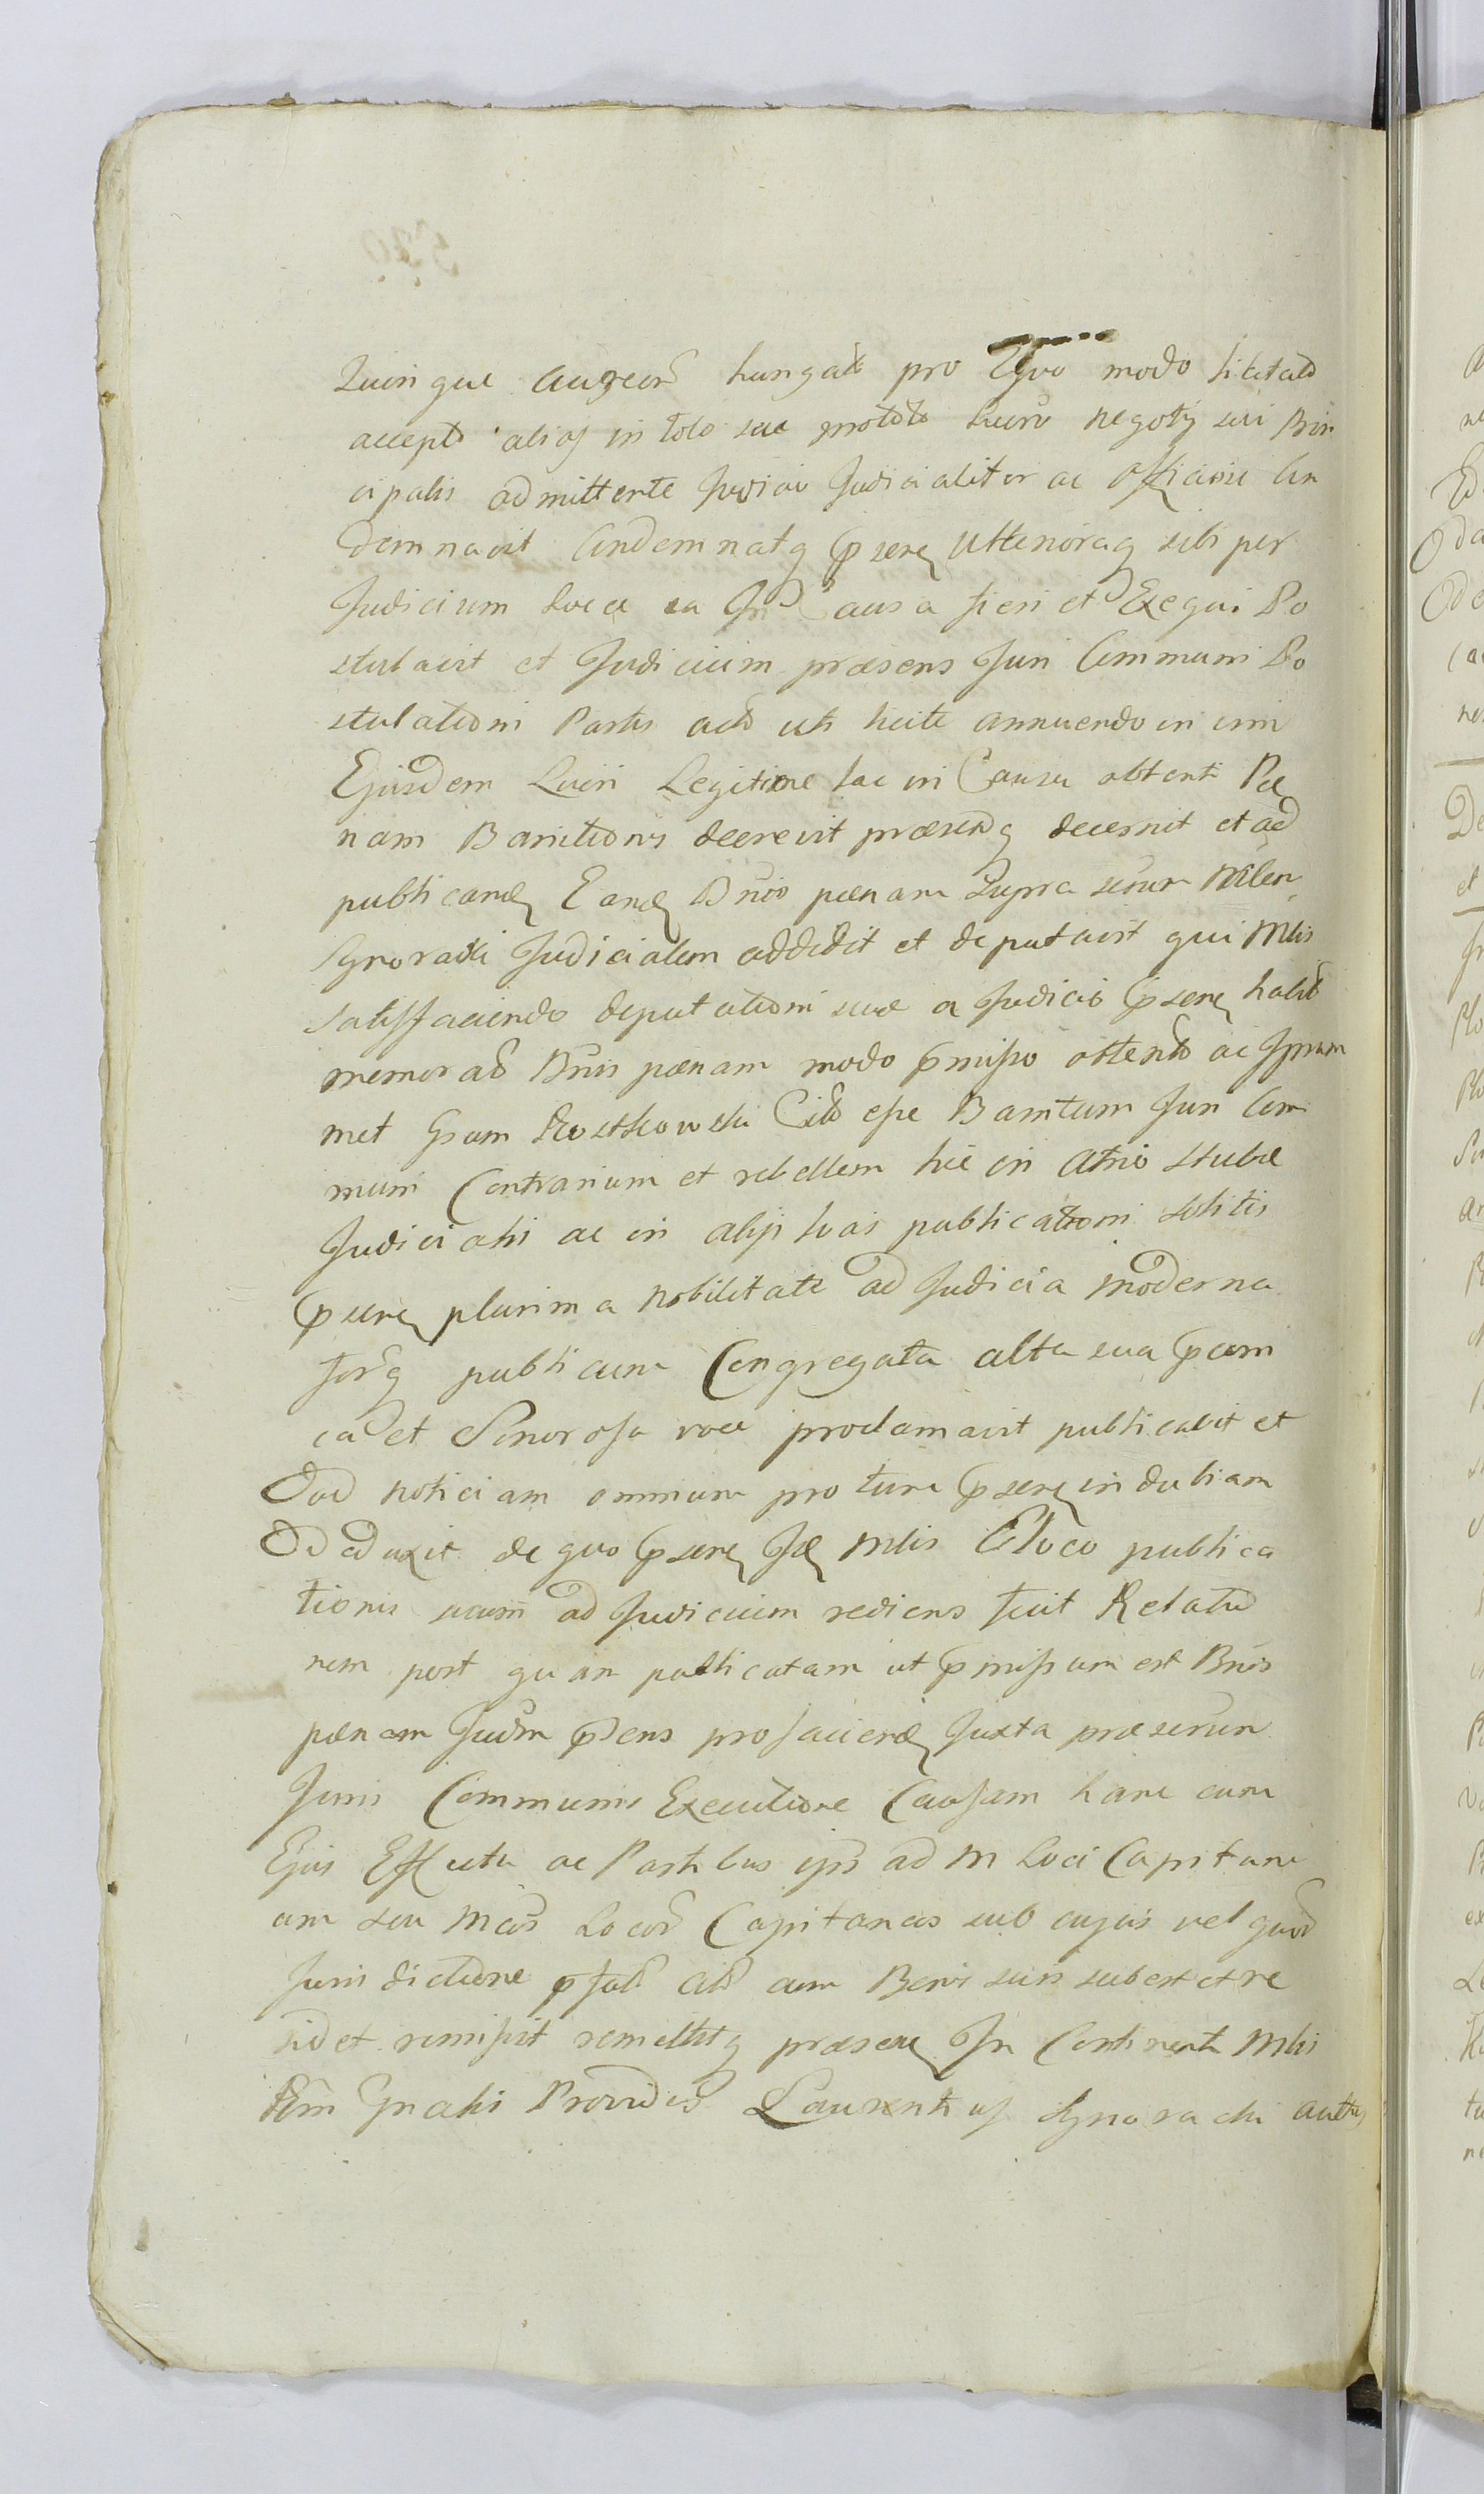 quinque aureor hungal pro Equo modo
accepto alias in toto suae lucro negotij sui Prin
cipalis admittente Judicio Judicialiter ac Officiose Con
demnavit Condemnatq pseren ulterioraq sibi per
Judicium Loca ea Causa fieri et Exequi Po
stulavit et Judicium praesens Juri Communi Po
stulationi Partis acto uti licite annuendo in vim
Ejusdem Lucri Legitime hac in Causa obtenti Pae
nam Banitionis decrevit praesentq decernit et ad
publicand Eand Bnis paenam supra
Judicialem addidit et deputavit qui Mlis
satisfaciendo deputationi suae a Judicio pseren habit
memorad Bnis paenam modo pmisso obtent ac Ipsum
met Gsum Rostkowski Cito esse Banitum Juri Com
muni Contrarium et rebellem hic in Atrio Stubae
Judicialis ac in alijs locis publicationi solitis
pseren plurima nobilitate ad Judicia moderna
forq publicum Congregata alta sua pcom
ca et Sonorosa voce proclamavit publicavit et
ad noticiam omnium pro tunc pseren indubiam
adduxit de quo pseren Id Mlis E loco publica
tionis suam ad Judicium rediens fecit Relatio
nem post quam publicatam ut pmissum est Bnis
paenam Judm psens pro faciend juxta praescrum
Juris Communis Executione Causam hanc cum
Ejus Effectu ac Partibus ipis ad M Loci Capitane
um seu Mcos Locor Capitaneos sub cujus vel quor
Jurisdictione pfat cito cum Benis suis subest et re
sidet remisit remittitq praesen In Continenti Mlis
Rgni Gnalis Providus Laurentius